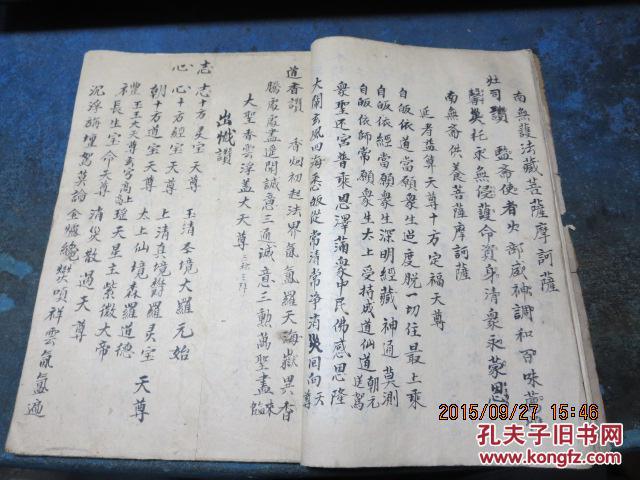 南無護法藏菩薩摩訶薩
灶司讚 監斋使者火部威神調和百味
冥托永無侵護命賓身清衆永蒙恩
南無斋供養菩薩摩訶薩
延壽益算天尊十方定福天尊
自皈依道當願衆生過度脱一切往昷上乘
自皈依經當願衆生深明經藏神通莫測
自皈依師常願衆生大上受持成道仙道朝元送駕
衆聖还宮普乘恩澤蒲衆中民佛感思隆
大闡玄風四海悉皈從常清常净消灾回向天尊
道香讚 香烟初起法界氤氳羅天海嶽異香
騰處處盡遥聞誠意三通誠意三勳萬聖盡來臨
大聖香雲浮蓋大天尊三称三拜
出懺讚
志志十方灵宝天尊 玉清圣境大羅元始
心心十方經宝天尊 上清真境欝羅灵宝 天尊
朝十方道宝天尊 太上仙境森羅道德
禮玉王大天尊玄宮高上 瑶天星主紫微大帝
求長生宝命天尊 清灾散過天尊
沉浮瑞壇駕奠諭金爐纔爇頌祥雲氤氳適
2015/09/27 15:46
孔夫子旧书网